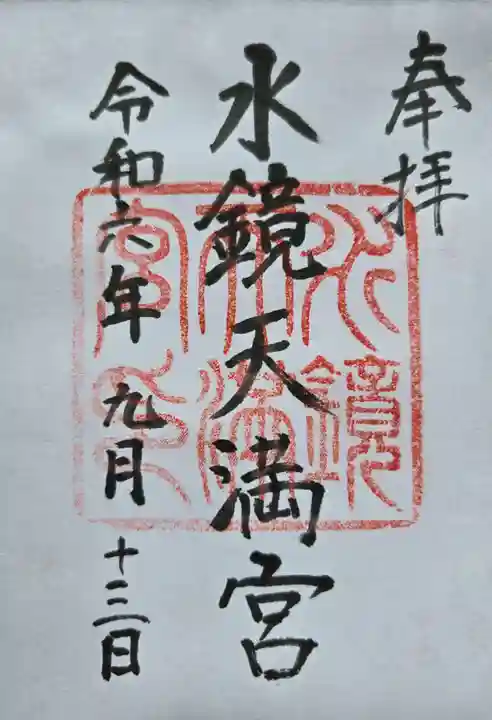 奉拝
水鏡天満宮
令和六年九月十三日
水鏡
天満
宮印